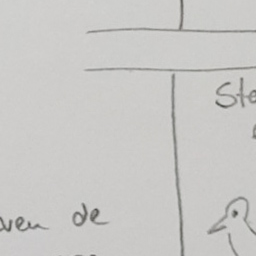 Ste
ven de